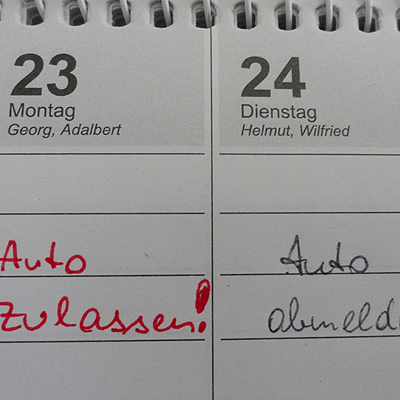 23
Montag
Georg, Adalbert
Auto
zulassen!
24
Dienstag
Helmut, Wilfried
Auto